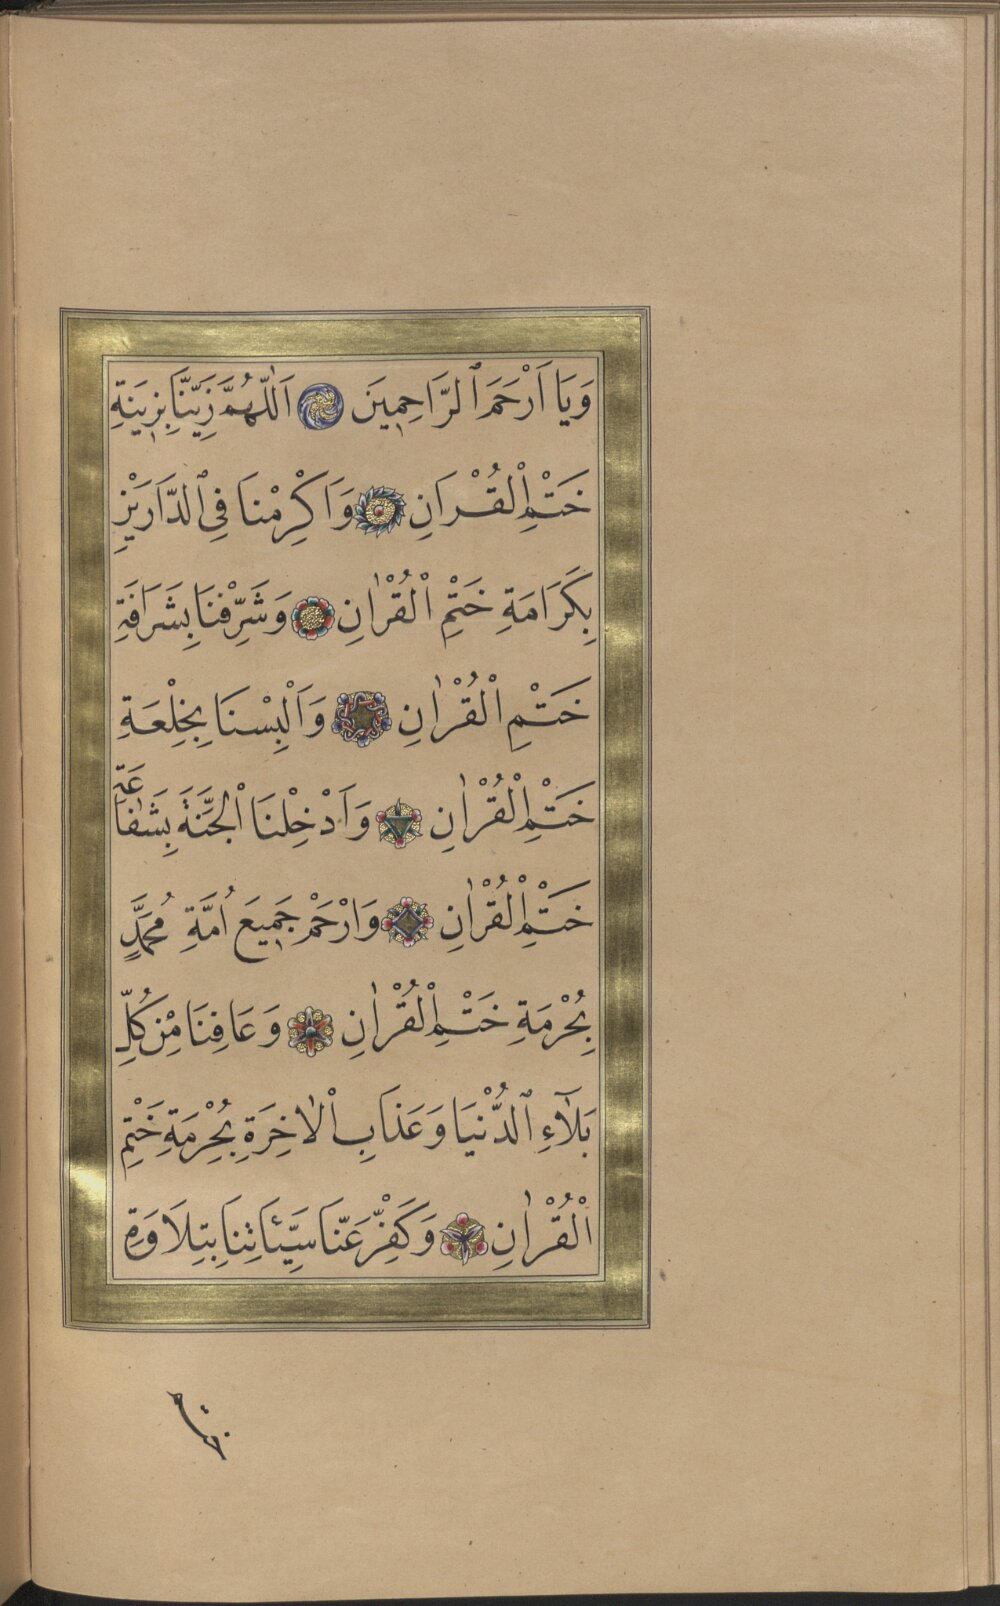 وَيَا اَرْحَمَ ٱلرَّاحِمِينَ اَللّٰهُمَّ زَيِّنَّا بِزِينَةِ
خَتْمِ اْلقُرْاَنِ وَاَكْرِمْنَا فِى ٱلدَّارَيْنِ
بِكَرَامَةِ خَتْمِ اْلقُرْاٰنِ وَشَرِّفْنَا بِشَرَافَةِ
خَتْمِ اْلقُرْاٰنِ وَاَلْبِسْنَا بِخِلْعَةِ
خَتْمِ اْلقُرْاٰنِ وَاَدْخِلْنَا اْلجَنَّةَ بِشَفَاعَةِ
خَتْمِ اْلقُرْاٰنِ وَارْحَمْ جَمِيعَ اُمَّةِ مُحَمَّدٍ
بِحُرْمَةِ خَتْمِ اْلقُرْاٰنِ وَعَافِنَا مِنْ كُلِّ
بَلَآءِ ٱلدُّنْيَا وَعَذَابِ اْلاٰخِرَةِ بِحُرْمَةِ خَتْمِ
اْلقُرْاٰنِ وَكَفِّرْ عَنَّا سَيِّئَاتِنَا بِتِلَاوَةِ
ختم